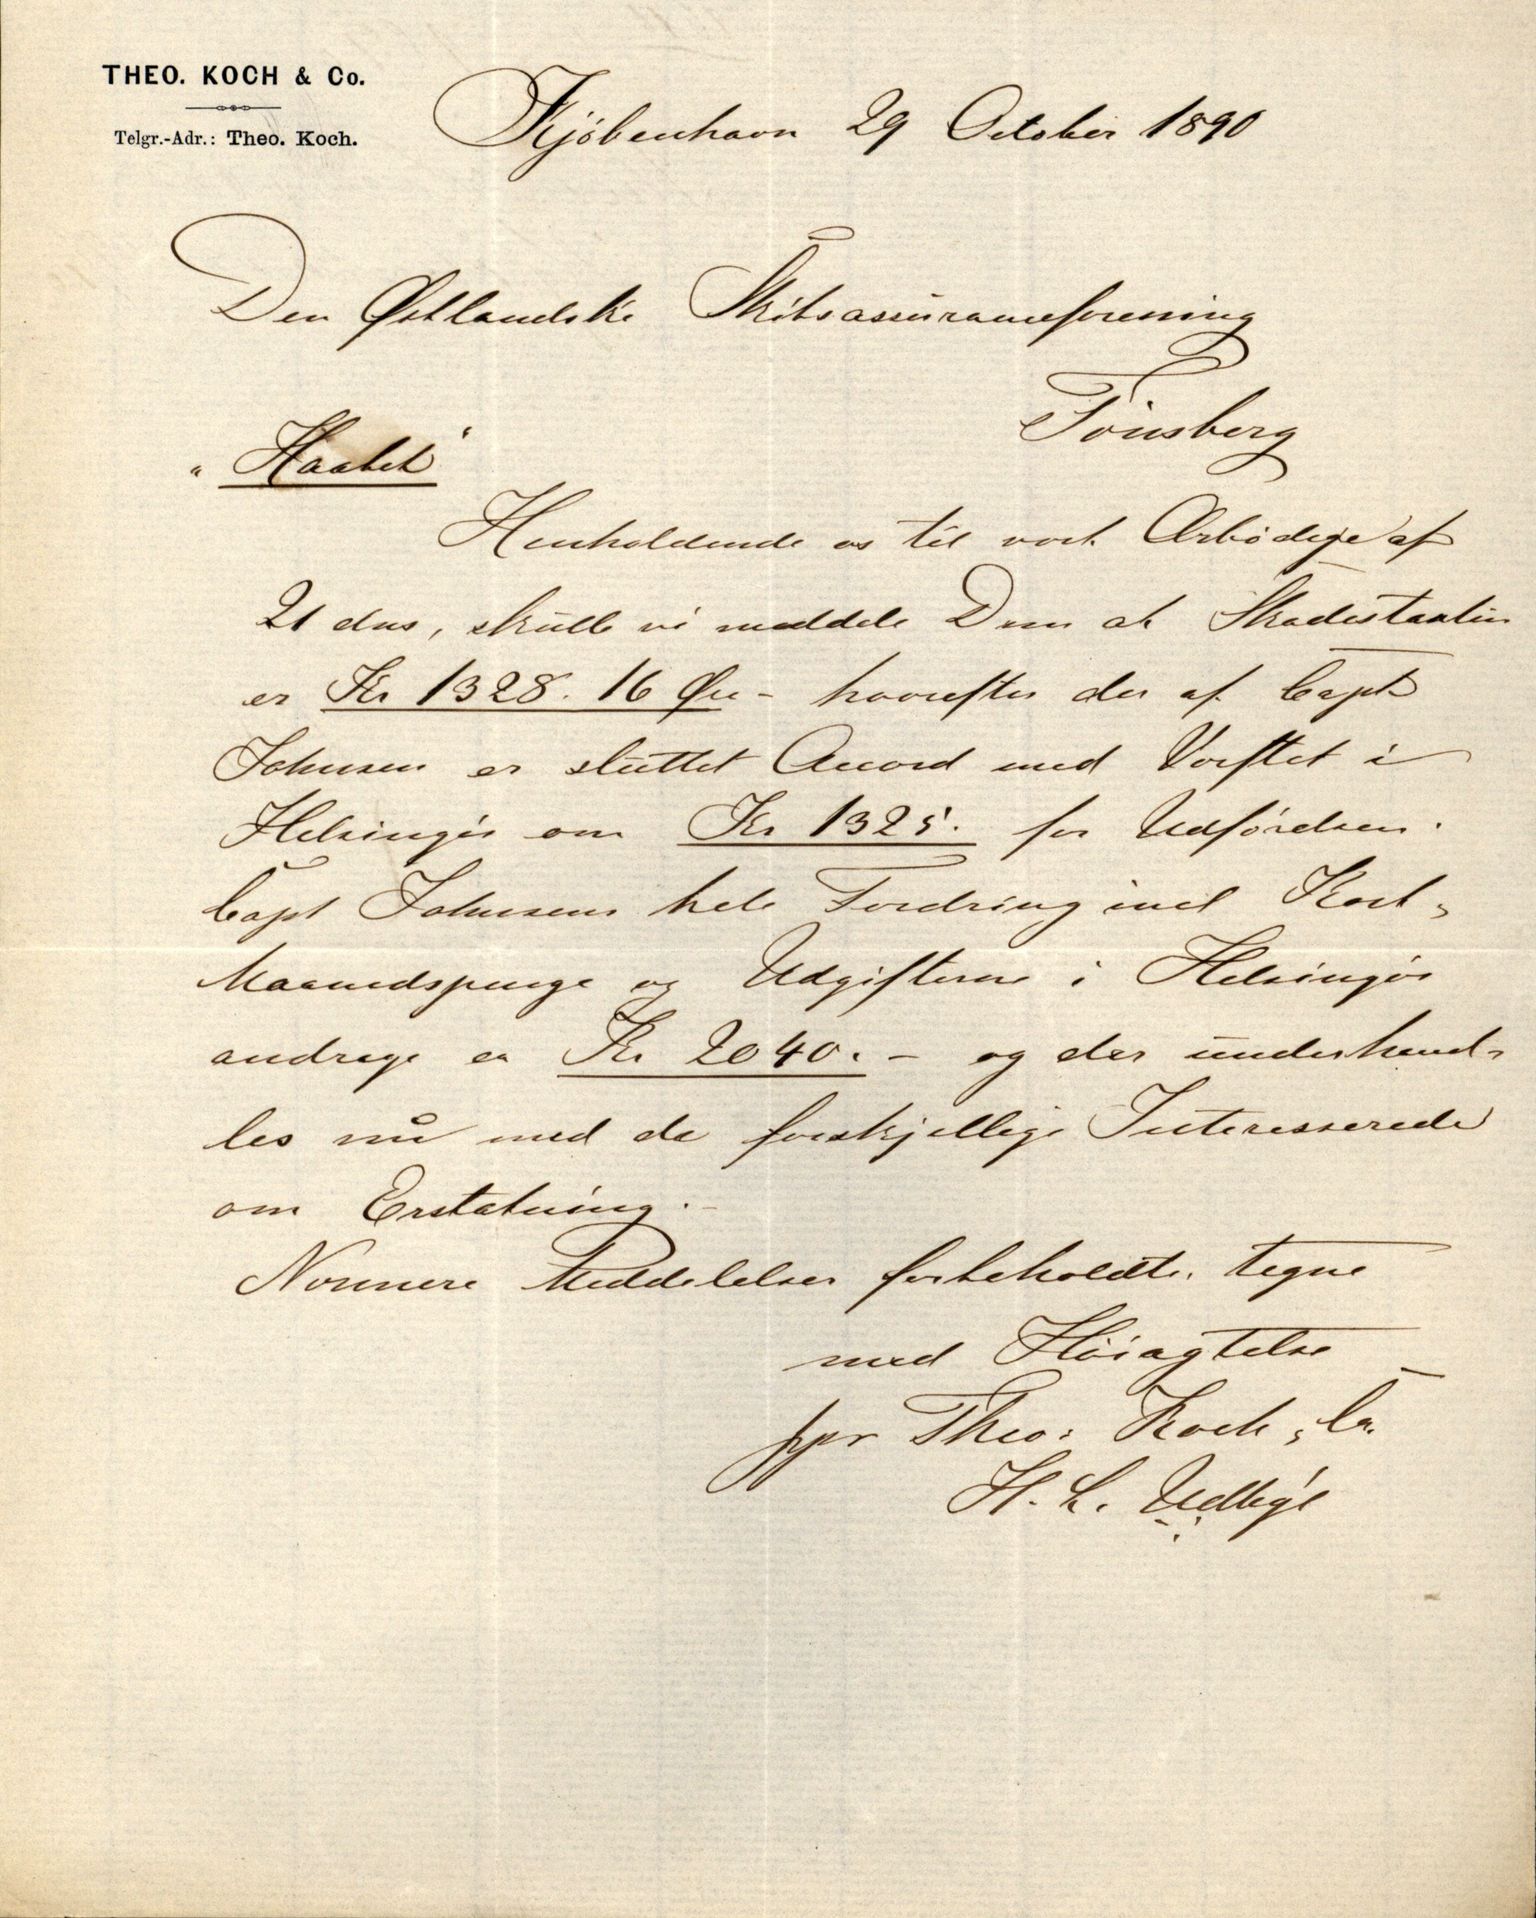 THEO. KOCH & Co.
Telgr.-Adr.: Theo. Koch.
Kjöbenhavn 29 October 1890
Den Østlandske Skibsassuranceforening
Tönsberg
"Haabet"
Henholdende os til vort Ærbødige af
21 dns, skulle vi meddele Dem at Skadestaxten
er Kr 1328. 16 Øre - hvorefter der af Capt
Johnsen er sluttet Accord med Værftet i
Helsingör om Kr 1325. for Udförelsen.
Capt Johnsens hele Fordring incl Kost &
Maanedspenge og Udgifterne i Helsingör
andrage ca Kr 2040. - og der underhand-
les nu med de forskjellige Interesserede
om Erstatning. -
Nærmere Meddelelser forbeholdte, tegne
med Höiagtelse
ppr Theo. Koch & Co.
H. L.